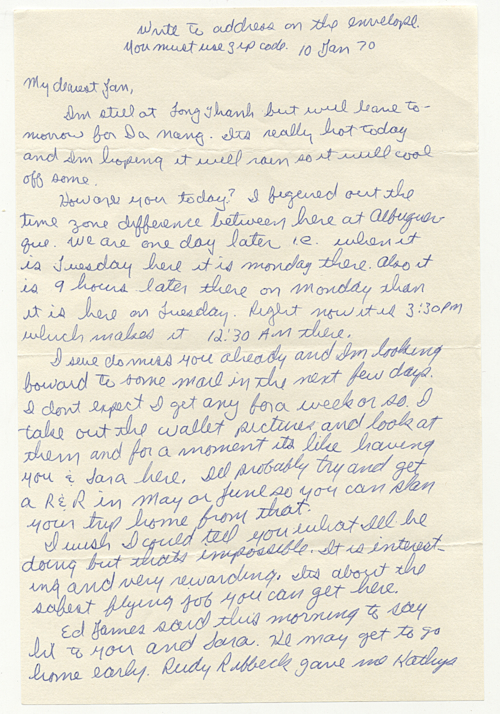 Write to address on the envelope.
You must use zip code. 10 Jan 70
My dearest Jan,
Im still at Long Thanh but will leave to-
morrow for Da nang. Its really hot today
and Im hoping it will rain so it will cool
off some.
How are you today? I figured out the
time zone difference between here at Albuquer-
que. We are one day later i.e. when it
is Tuesday here it is monday there. Also it
is 9 hours later there on Monday than
it is here on Tuesday. Right now it is 3:30 PM
which makes it 12:30 AM there.
I sure do miss you already and Im looking
foward to some mail in the next few days.
I dont expect I get any for a week or so. I
take out the wallet pictures and look at
them and for a moment its like having
you & Sara here. Ill probably try and get
a R&R in May or June so you can plan
your trip home from that.
I wish I could tell you what Ill be
doing but thats impossible. It is interest-
ing and very rewarding. Its about the
safest flying job you can get here.
Ed James said this morning to say
hi to you and Sara. He may get to go
home early. Rudy Ribbeck gave me Kathys